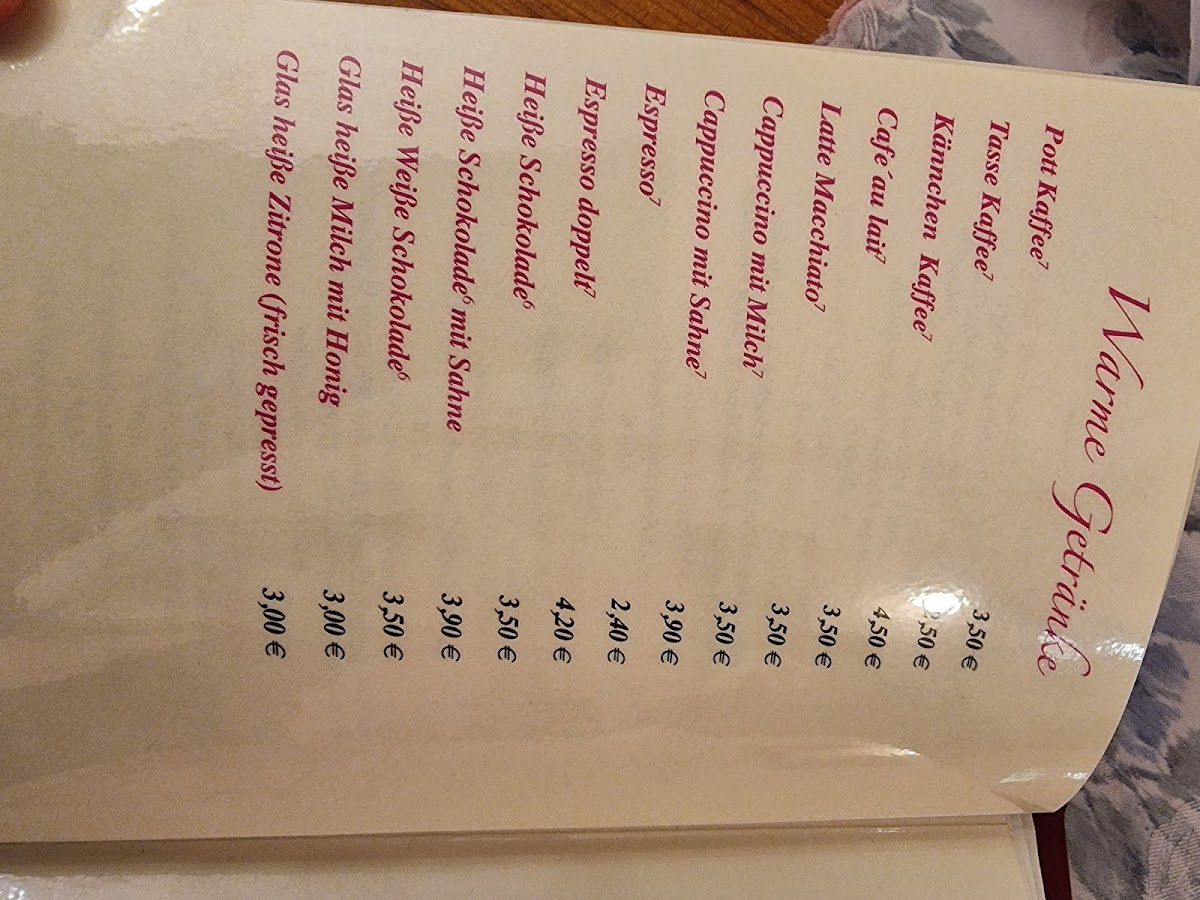 Warme Getränke
Pott Kaffee⁷ 3,50 €
Tasse Kaffee⁷ 2,50 €
Kännchen Kaffee⁷ 4,50 €
Café´au lait⁷ 3,50 €
Latte Macchiato⁷ 3,50 €
Cappuccino mit Milch⁷ 3,50 €
Cappuccino mit Sahne⁷ 3,90 €
Espresso⁷ 2,40 €
Espresso doppelt⁷ 4,20 €
Heiße Schokolade⁶ 3,50 €
Heiße Schokolade⁶ mit Sahne 3,90 €
Heiße Weiße Schokolade⁶ 3,50 €
Glas heiße Milch mit Honig 3,00 €
Glas heiße Zitrone (frisch gepresst) 3,00 €